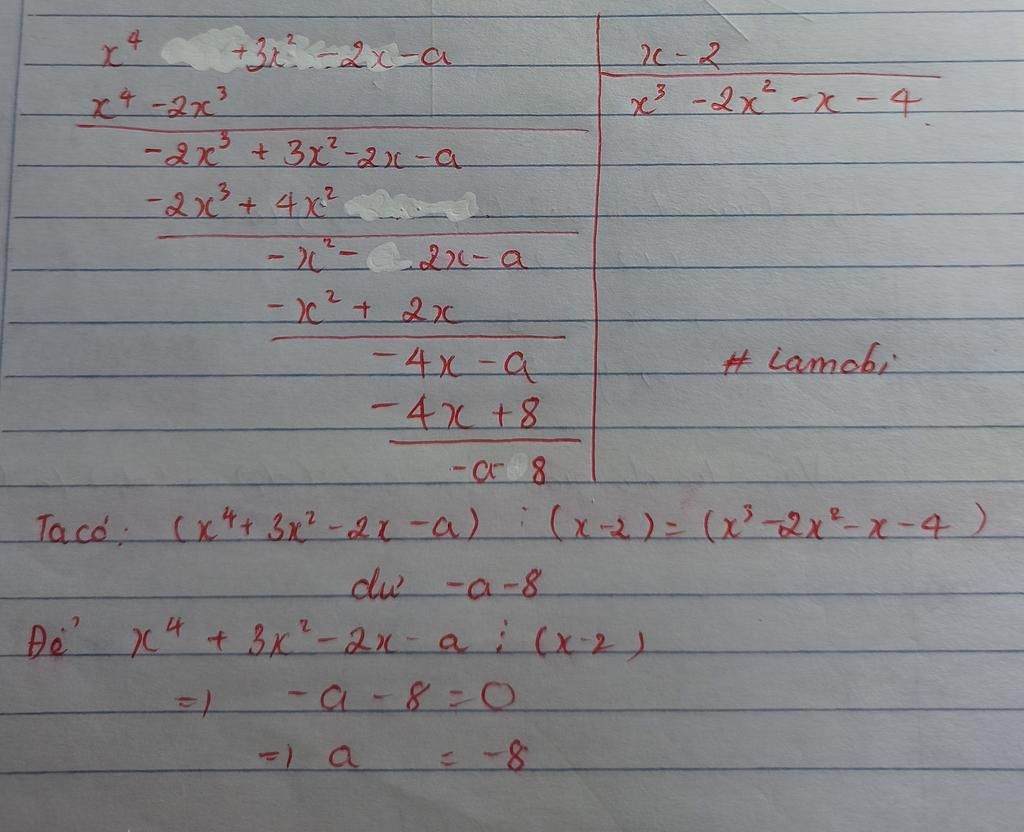 x⁴ +3x² -2x-a
x-2
x⁴ -2x³
x³ -2x² -x -4
-2x³ + 3x² -2x -a
-2x³ + 4x²
-x² - 2x-a
-x² + 2x
-4x -a
# iamobi
-4x +8
-a 8
Ta có: (x⁴+ 3x² -2x -a) : (x-2) = (x³ -2x² -x -4)
dư -a-8
Để x⁴ + 3x² -2x - a ⋮ (x-2)
=) -a - 8 = 0
=) a = -8